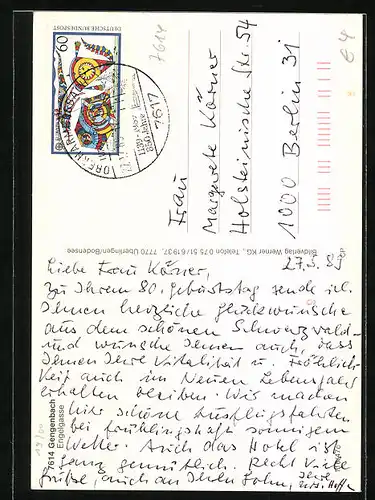 DEUTSCHE BUNDESPOST
60
7617
850 Jahre
7614
€ 4
Frau
Margarete Körner
Holsteinische Str. 54
1000 Berlin 31
Bildverlag Werner KG., Telefon 0 75 51/6 19 37, 7770 Überlingen/Bodensee
7614 Gengenbach
Engelgasse
27.5.89
Liebe Frau Körner,
Zu Ihrem 80. Geburtstag sende ich
Ihnen herzliche Glückwünsche
aus dem schönen Schwarzwald
und wünsche Ihnen auch, dass
Ihnen Ihre Vitalität u. Fröhlich-
keit auch im Neuen Lebensjahr
erhalten bleiben. Wir machen
hier schöne Ausflugsfahrten
bei frühlingshaft sonnigem
Wetter. Auch das Hotel ist
ganz gemütlich. Recht viele
Grüße, auch an Ihren Sohn, Ihre